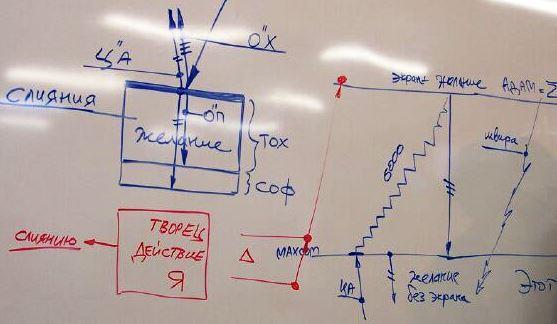 О"Х
Ц"А
СЛИЯНИЯ
О"П
ЖЕЛАНИЕ
ТОХ
СОФ
ТВОРЕЦ
ДЕЙСТВИЕ
Я
СЛИЯНИЮ
Δ
МАХСОМ
ЭКРАН+ ЖЕЛАНИЕ
АДАМ=Σ
ШВИРА
6000
ЦА
ЖЕЛАНИЕ
БЕЗ ЭКРАНА
ЭТОТ